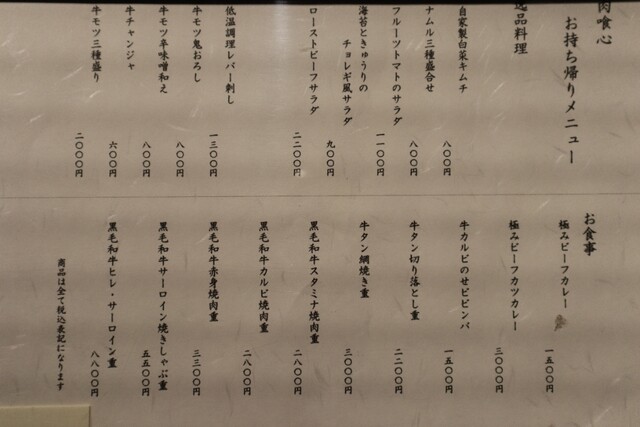 肉喰心
お持ち帰りメニュー
逸品料理
自家製白菜キムチ
八〇〇円
ナムル三種盛合せ
八〇〇円
フルーツトマトのサラダ
一一〇〇円
海苔ときゅうりの
チョレギ風サラダ
九〇〇円
ローストビーフサラダ
二二〇〇円
低温調理レバー刺し
一三〇〇円
牛モツ鬼おろし
八〇〇円
牛モツ辛味噌和え
八〇〇円
牛チャンジャ
六〇〇円
牛モツ三種盛り
二〇〇〇円
お食事
極みビーフカレー
一五〇〇円
極みビーフカツカレー
三〇〇〇円
牛カルビのせビビンバ
一五〇〇円
牛タン切り落とし重
二二〇〇円
牛タン網焼き重
三〇〇〇円
黒毛和牛スタミナ焼肉重
二八〇〇円
黒毛和牛カルビ焼肉重
二八〇〇円
黒毛和牛赤身焼肉重
三三〇〇円
黒毛和牛サーロイン焼きしゃぶ重
五五〇〇円
黒毛和牛ヒレ・サーロイン重
八八〇〇円
商品は全て税込表記になります